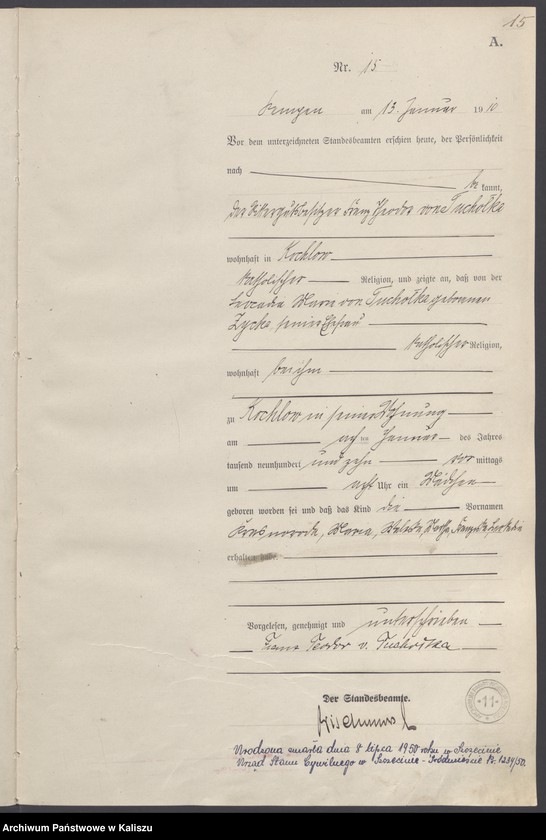 15
A.
Nr. 15
Kempen am 13. Januar 1910
Vor dem unterzeichneten Standesbeamten erschien heute, der Persönlichkeit
nach
be kannt,
der Rittergutsbesitzer Franz Theodor von Tucholka
wohnhaft in Kochlow
katholischer Religion, und zeigte an, daß von der
Leocadia Maria von Tucholka geborenen
Zycka, seiner Ehefrau
katholischer Religion,
wohnhaft bei ihm
zu Kochlow in seiner Wohnung
am acht ten Januar des Jahres
tausend neunhundert und zehn vor mittags
um acht Uhr ein Mädchen
geboren worden sei und daß das Kind die Vornamen
Maria, Martha,
erhalten habe.
Vorgelesen, genehmigt und unterschrieben
Franz Teodor v. Tucholka
Der Standesbeamte.
11
Urodzona zmarła dnia 8 lipca 1950 roku w Szczecinie
Urząd Stanu Cywilnego w Szczecinie - Śródmieście Nr. 1234/50.
Archiwum Państwowe w Kaliszu